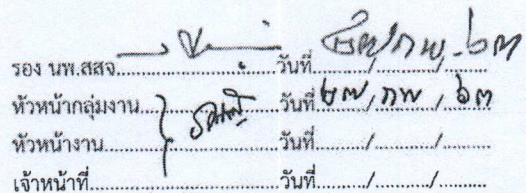 รอง นพ.สสจ.................วันที่ ๒๗/กพ/๖๓
หัวหน้ากลุ่มงาน.................วันที่ ๒๗/กพ/๖๓
หัวหน้างาน.................วันที่........./........./.........
เจ้าหน้าที่.................วันที่........./........./.........